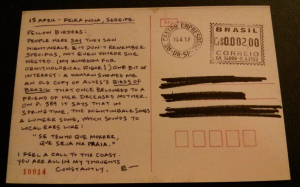 15 APRIL - FEIRA NOVA, SERGIPE.
FELLOW BIRDERS:
PEOPLE HERE SAY THEY SAW
NIGHTINGALE & IT DON'T REMEMBER
SPECIFICS, NOT EVEN WHERE SHE
NESTED (MY KINGDOM FOR
ORNITHOLOGICAL RIGOR!) ONE BIT OF
INTEREST: A WOMAN SHOWED ME
AN OLD COPY OF ALVES'S BIRDS OF
BRAZIL THAT ONCE BELONGED TO A
FRIEND OF HER DECEASED MOTHER.
ON P. 389 IT SAYS THAT IN
SPRINGTIME, THE NIGHTINGALE SINGS
A LONGER SONG, WHICH SOUNDS TO
LOCAL EARS LIKE:
"SE TENHO QUE MORRER,
QUE SEJA NA PRAIA."
I FEEL A CALL TO THE COAST.
YOU ARE ALL IN MY THOUGHTS
CONSTANTLY. E—
10914
BRASIL
002.00
CORREIO